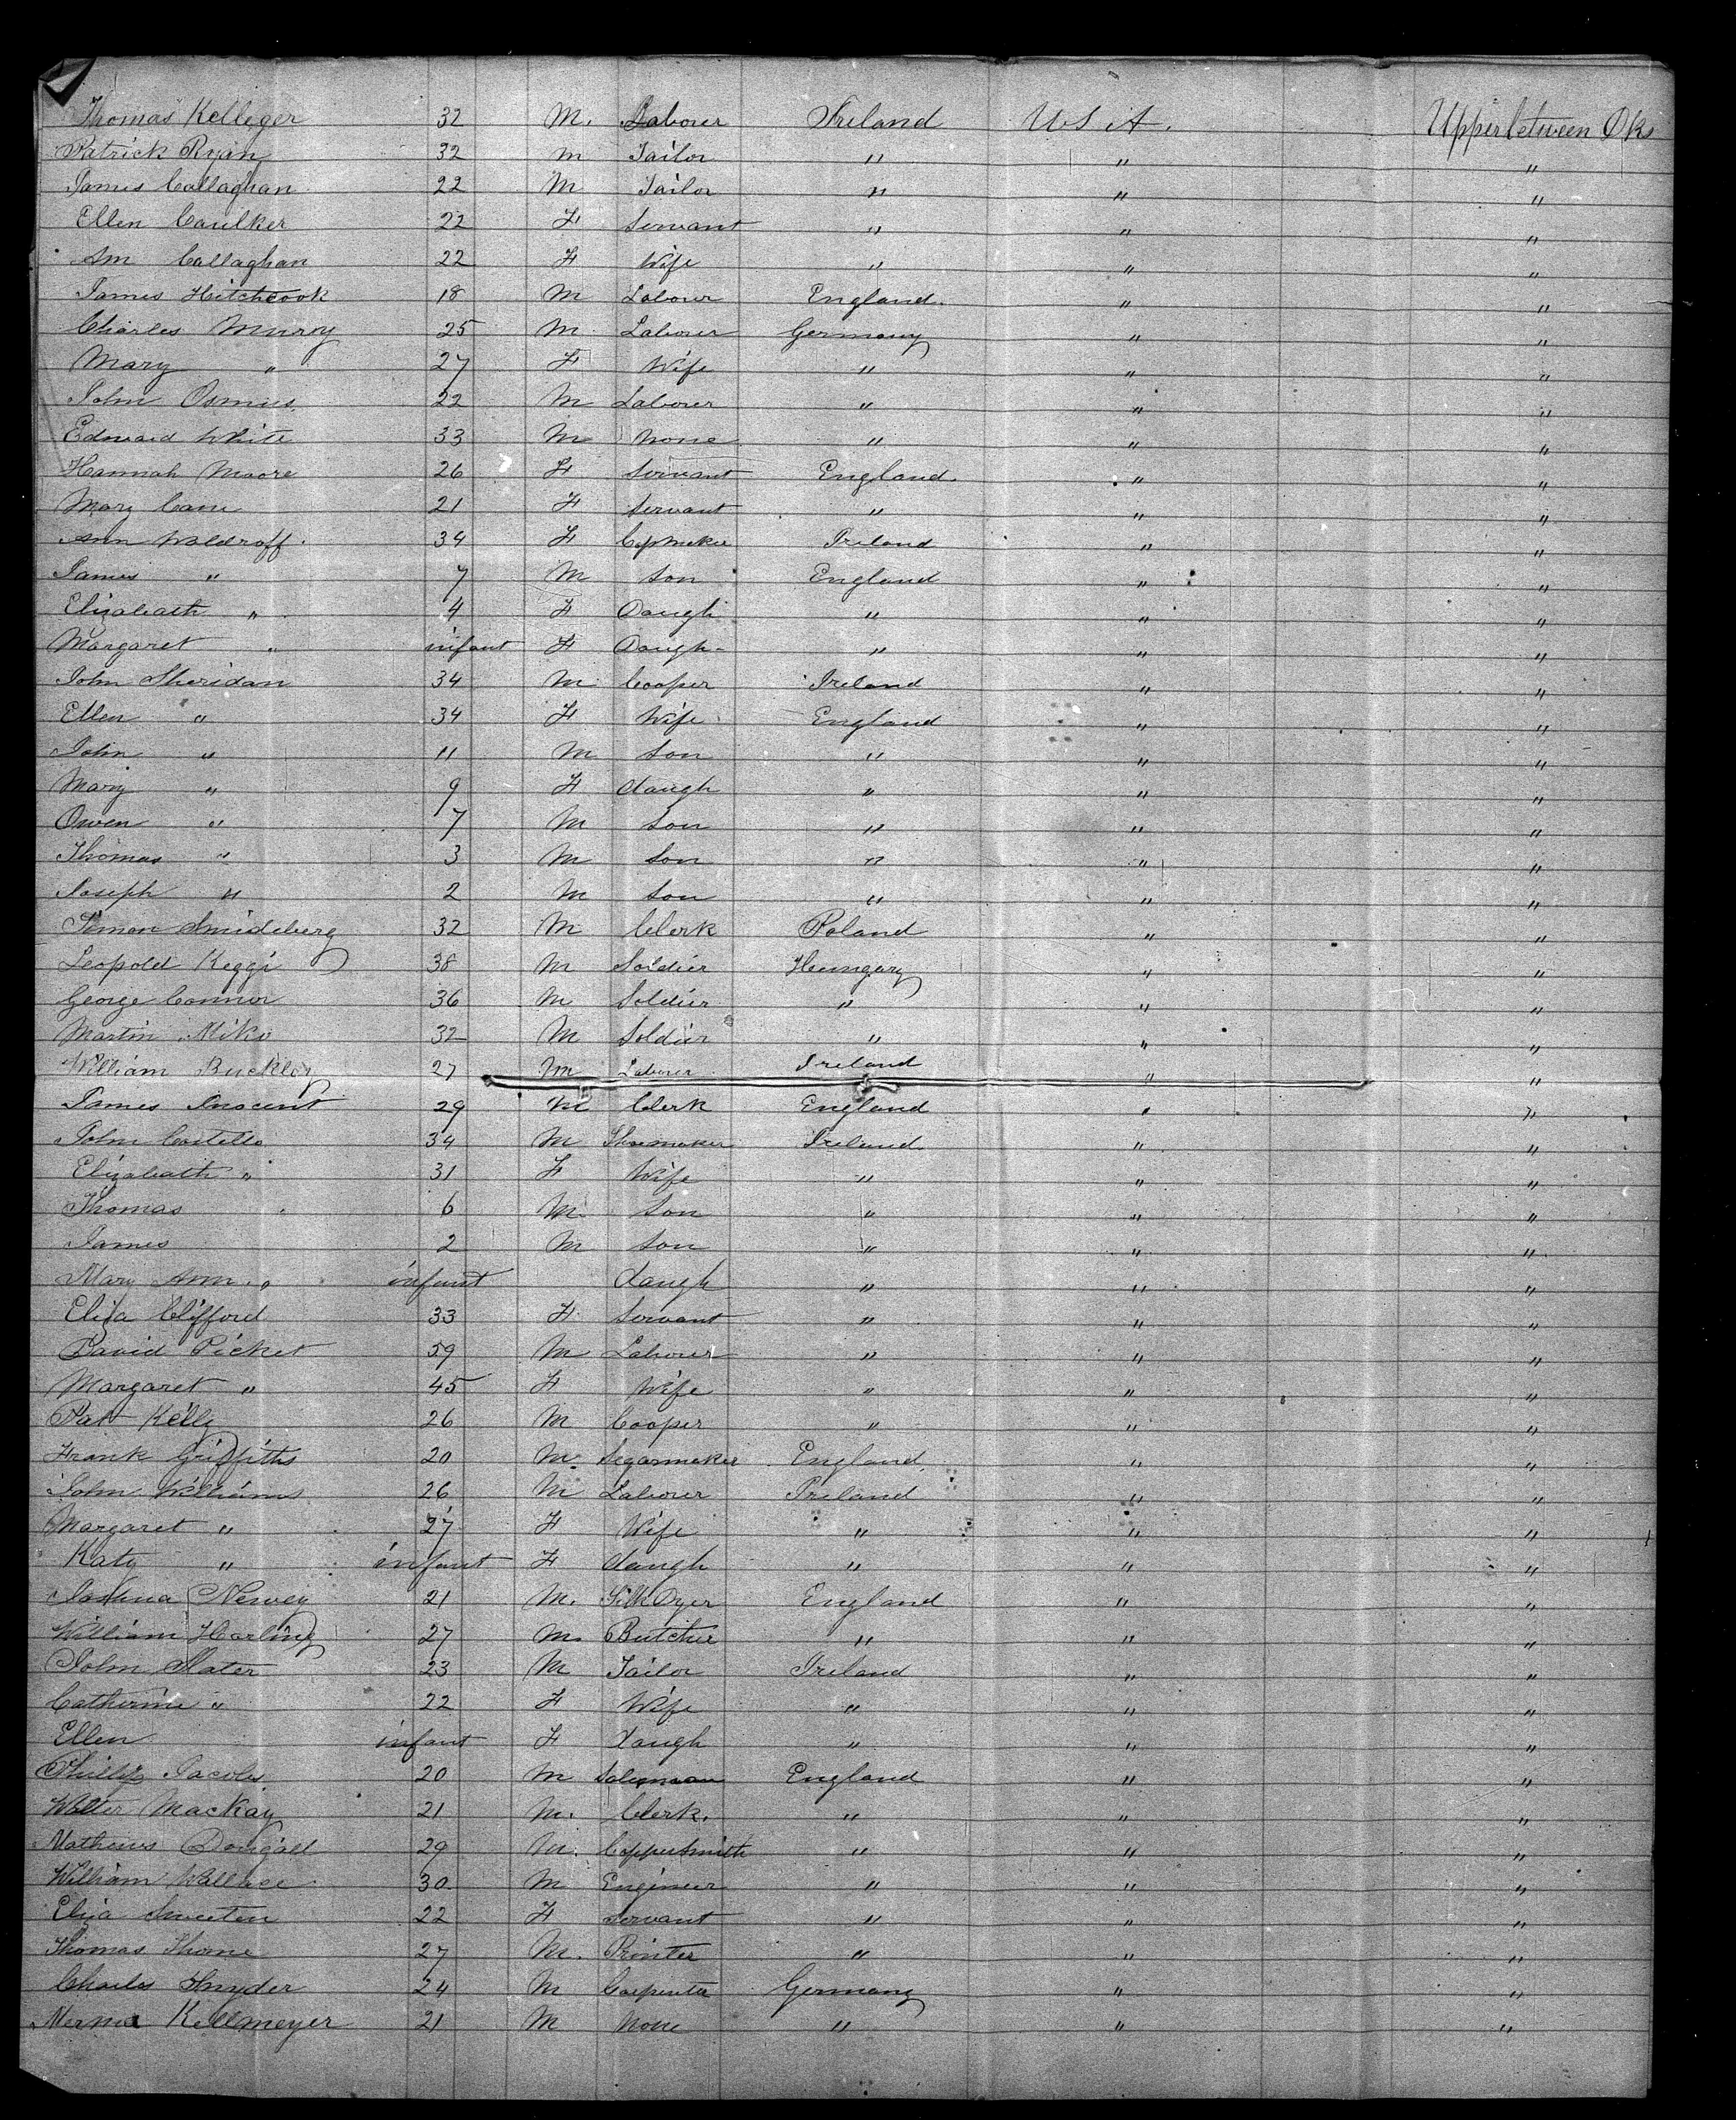 Thomas Kelleger 32 M. Laborer Ireland U S A. Upper between Dks
Patrick Ryan 32 M Tailor " " "
James Callaghan 22 M Tailor " " "
Ellen Caulker 22 F Servant " " "
Am Callaghan 22 F Wife " " "
James Hitchcook 18 M Laborer England. " "
Charles Muroy 25 M Laborer Germany " "
Mary " 27 F Wife " " "
John Osmus 22 M Laborer " " "
Edward White 33 M None " " "
Hannah Moore 26 F Servant England. " "
Mary Cane 21 F Servant " " "
Ann Waldroff 34 F Capmaker Ireland " "
James " 7 M Son England " "
Elizabeath " 4 F Daugh " " "
Margaret " infant F Daugh- " " "
John Sheridan 34 M Cooper Ireland " "
Ellen " 34 F Wife England " "
John " 11 M Son " " "
Mary " 9 F daugh " " "
Owen " 7 M Son " " "
Thomas " 3 M Son " " "
Joseph " 2 M Son " " "
Simon Smideberg 32 M Clerk Poland " "
Leopold Keggi 38 M Soldier Hungary " "
George Connor 36 M Soldier " " "
Martin Miko 32 M Soldier " " "
William Buckley 27 M Laborer Ireland " "
James Inocent 29 M Clerk England " "
John Costello 34 M Shoemaker Ireland " "
Elizabeath " 31 F Wife " " "
Thomas " 6 M. Son " " "
James 2 M Son " " "
Mary Ann " infant daugh " " "
Eliza Clifford 33 F Servant " " "
David Picket 59 M Laborer " " "
Margaret " 45 F Wife " " "
Pat Kelly 26 M Cooper " " "
Frank Griffiths 20 M. Segarmaker England " "
John Williams 26 M Laborer Ireland " "
Margaret " 27 F Wife " " "
Katy " infant F daugh " " "
Joshua Newey 21 M. Silk Dyer England " "
William Harling 27 M. Butcher " " "
John Slater 23 M Tailor Ireland " "
Catherine " 22 F Wife " " "
Ellen infant F daugh " " "
Phillip Jacobs 20 M Salesman England " "
Walter Mackay 21 M. Clerk. " " "
Mathews Dougall 29 M. Coppersmith " " "
William Wallace 30 M Engineer " " "
Eliza Sweeten 22 F Servant " " "
Thomas Thorne 27 M. Printer " " "
Charles Snyder 24 M Carpenter Germany " "
Kellmeyer 21 M None " " "